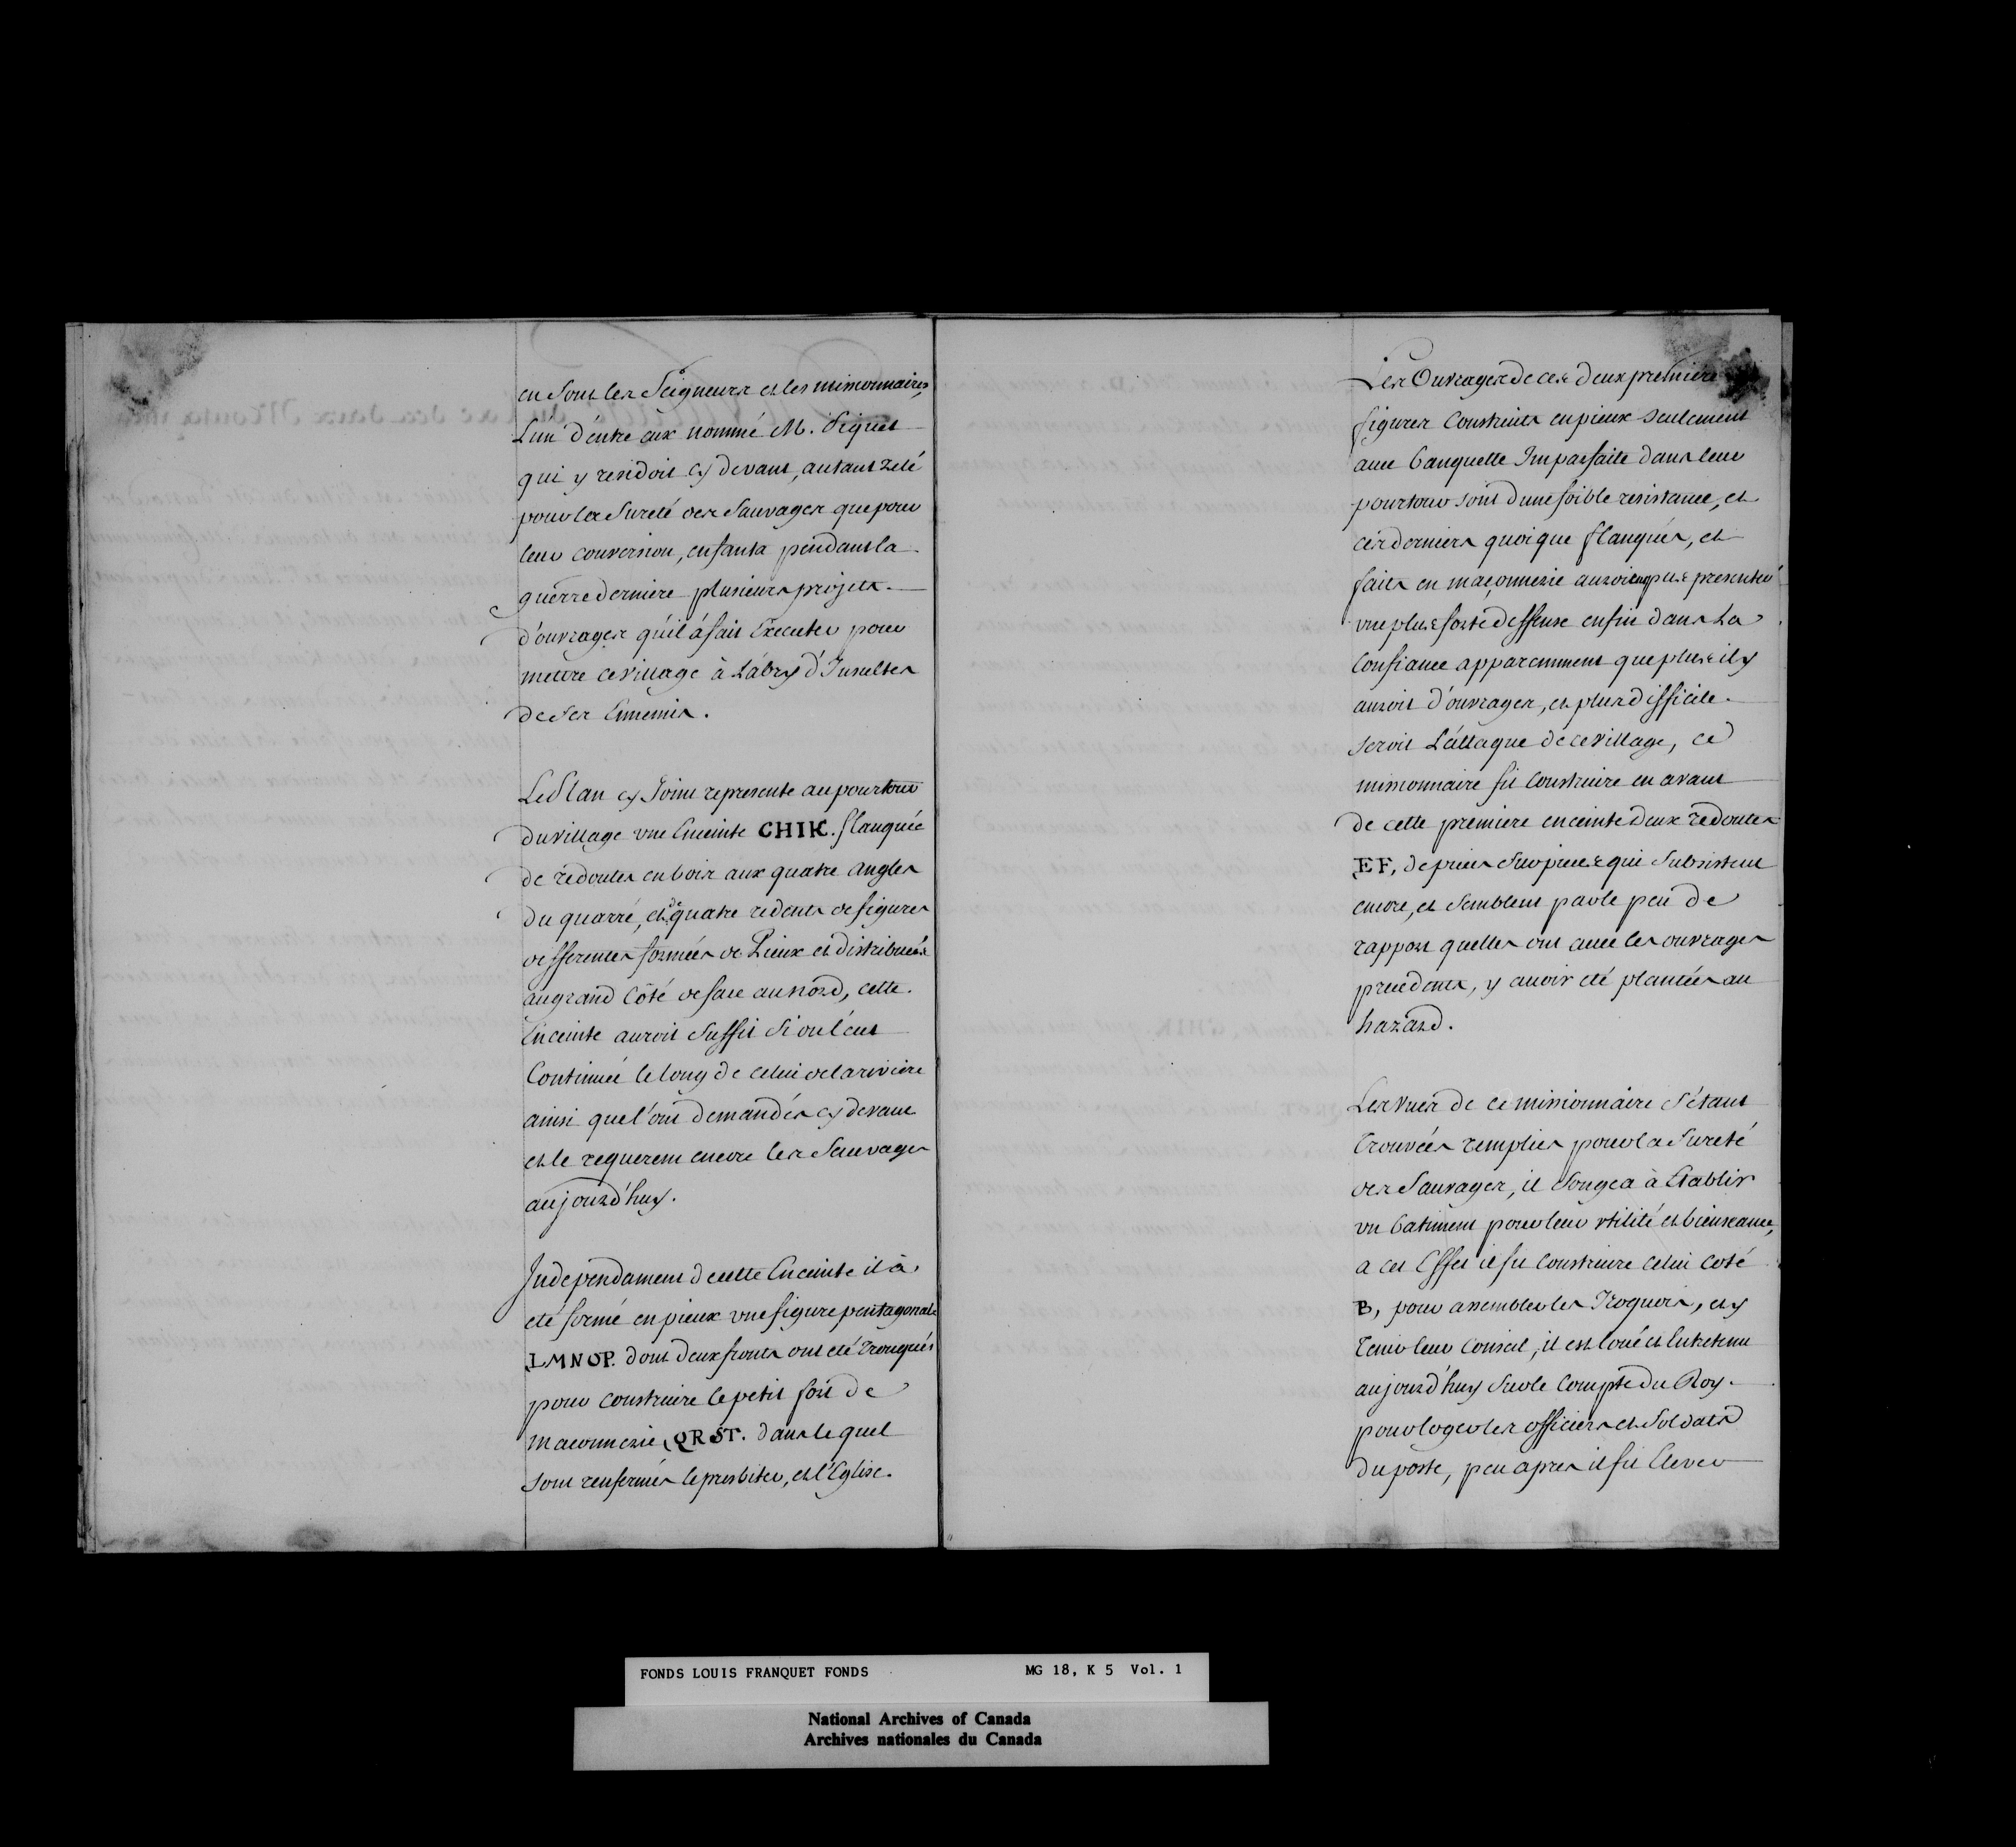 en sont les Seigneurs et les missionnaires,
L'un d'entre eux nommé M. Piquet
qui y residoit cy devant, autant zelé
pour la Sureté des Sauvages que pour
leur conversion, enfanta pendant la
guerre derniere plusieurs projets
d'ouvrages qu'il à fait Executer pour
mettre ce village à L'abry d'Insultes
de ses Ennemis.
Le Plan cy Joint represente au pourtour
du village une Enceinte CHIK. flanquée
de redoutes en bois aux quatre angles
du quarré, et de quatre redents de figures
differentes formées de Pieux et distribuées
au grand Côté de face au Nord, cette
Enceinte auroit Suffit Si on l'eut
Continuée le long de celui de la riviere
ainsi que l'ont demandés cy devant
et le requerent encore les Sauvages
aujourd'huy.
Independament de cette Enceinte il à
eté formé en pieux une figure pentagonale
LMNOP. dont deux fronts ont eté tronqués
pour Construire le petit fort de
maconnerie QRST. dans le quel
sont renfermés le presbiter, et l'Eglise.
Les Ouvrages de ces deux premiere
figures Construits en pieux seulement
avec banquette Imparfaite dans leur
pourtour sont d'une foible resistance, et
ces derniers quoique flanqués, et
faits en maçonnerie auroient pus presenter
une plus forte deffense enfin dans La
Confiance apparemment que plus il y
auroit d'ouvrages, et plus difficile
seroit L'attaque de ce village, ce
missionnaire fit Construire en avant
de cette premiere enceinte deux redoutes
EF, de pieces sur pieces qui Subsistent
encore, et Semblent par le peu de
rapport quelles ont avec les ouvrages
precedents, y avoir eté plantées au
hazard.
Les vues de ce missionnaire s'étant
trouvées remplies pour la Sureté
des Sauvages, il Songea à Etablir
un batiment pour leur utilité et bienseance,
a cet Effet il fit Construire celui coté
B, pour assembler les Iroquois, et y
tenir leur Conseil, il est loué et Entretenu
aujourd'huy sur le Compte du Roy
pour loger les officiers et Soldats
du poste, peu apres il fit Elever
FONDS LOUIS FRANQUET FONDS MG 18, K 5 Vol. 1
National Archives of Canada
Archives nationales du Canada